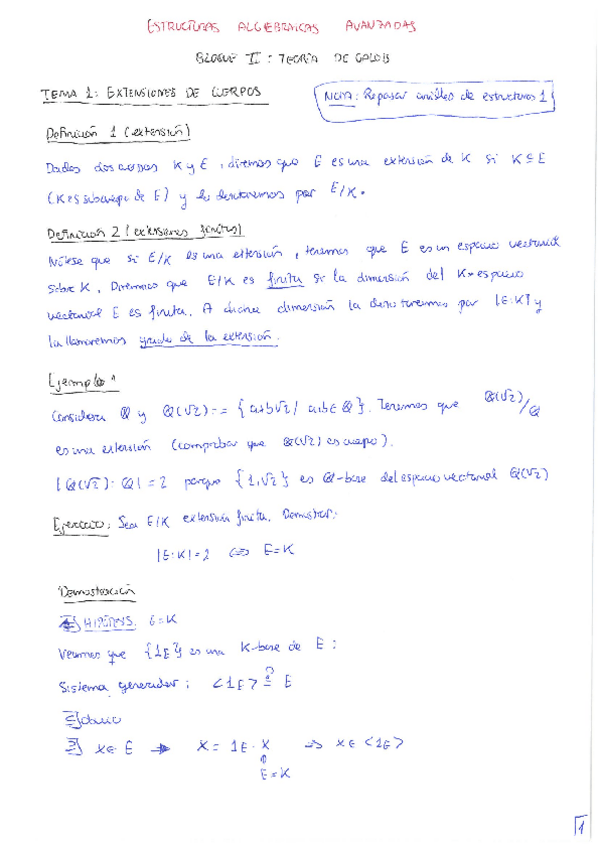 ESTRUCTURAS ALGEBRAICAS AVANZADAS
BLOQUE II: TEORÍA DE GALOIS
TEMA 1: EXTENSIONES DE CUERPOS
NOTA: Repasar anillos de estructuras 1
Definición 1 (extensión)
Dados dos cuerpos K y E, diremos que E es una extensión de K si K ⊆ E
(K es subcuerpo de E) y lo denotaremos por E/K.
Definición 2 (extensiones finitas)
Nótese que si E/K es una extensión, tenemos que E es un espacio vectorial
sobre K. Diremos que E/K es finita si la dimensión del K-espacio
vectorial E es finita. A dicha dimensión la denotaremos por |E:K| y
la llamaremos grado de la extensión.
Ejemplo 1
Considera Q y Q(√2) := {a+b√2 / a,b ∈ Q}. Tenemos que Q(√2)/Q
es una extensión (comprobar que Q(√2) es cuerpo).
|Q(√2):Q| = 2 porque {1,√2} es Q-base del espacio vectorial Q(√2)
Ejercicio: Sea E/K extensión finita. Demostrar:
|E:K| = 2 ⇔ E=K
Demostración
⇐] HIPÓTESIS. E=K
Veamos que {1E} es una K-base de E:
Sistema generador: <1E> =? E
⊆] obvio
⊇] x ∈ E → x = 1E · x ⇒ x ∈ <1E>
E=K
1